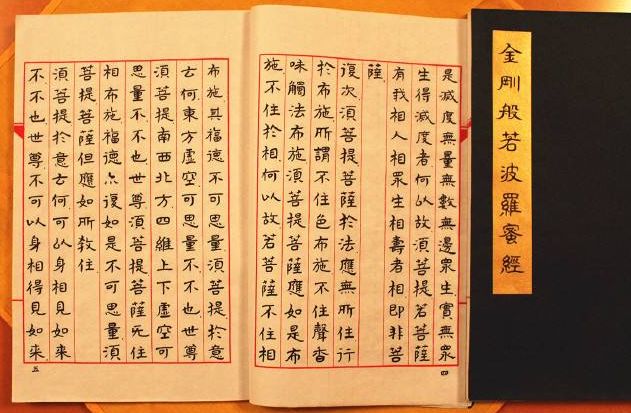 金剛般若波羅蜜經
是滅度無量無數無邊眾生實無眾
生得滅度者何以故須菩提若菩薩
有我相人相眾生相壽者相即非菩
薩
復次須菩提菩薩於法應無所住行
於布施所謂不住色布施不住聲香
味觸法布施須菩提菩薩應如是布
施不住於相何以故若菩薩不住相
四
布施其福德不可思量須菩提於意
云何東方虛空可思量不不也世尊
須菩提南西北方四維上下虛空可
思量不不也世尊須菩提菩薩无住
相布施福德亦復如是不可思量須
菩提菩薩但應如所教住
須菩提於意云何可以身相見如來
不不也世尊不可以身相得見如來
五